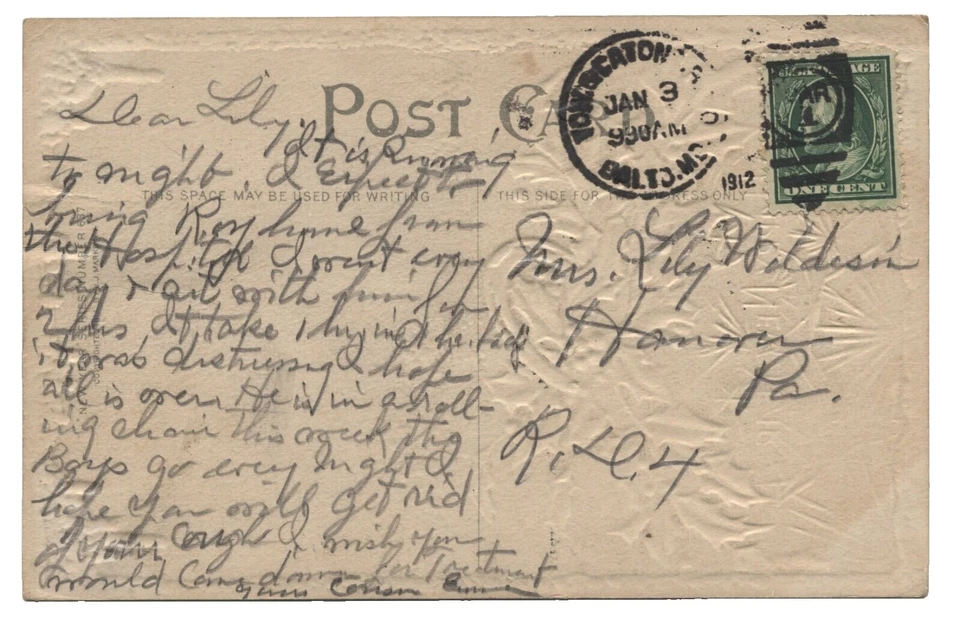 POST CARD
THIS SPACE MAY BE USED FOR WRITING
THIS SIDE FOR ADDRESS ONLY
JAN 3
930AM
BALTO. MD.
1912
U.S. POSTAGE
ONE CENT
Dear Lily.
It is Running
to night, I Expect to
bring Roy home from
the Hospital I went every
day & sit with him for
2 hrs
it was distressing I hope
all is over. He is in a roll-
ing chair this week the
Boys go every night I
hope you will get rid
of your Cough I wish you
would Come down for Treatment
your Cousin
Mrs. Lily
Hanover
Pa.
R. D. 4